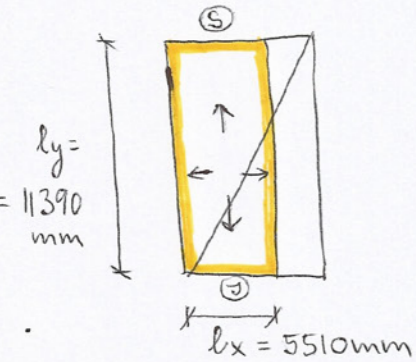 S
ly=
= 11390
mm
J
lx = 5510mm